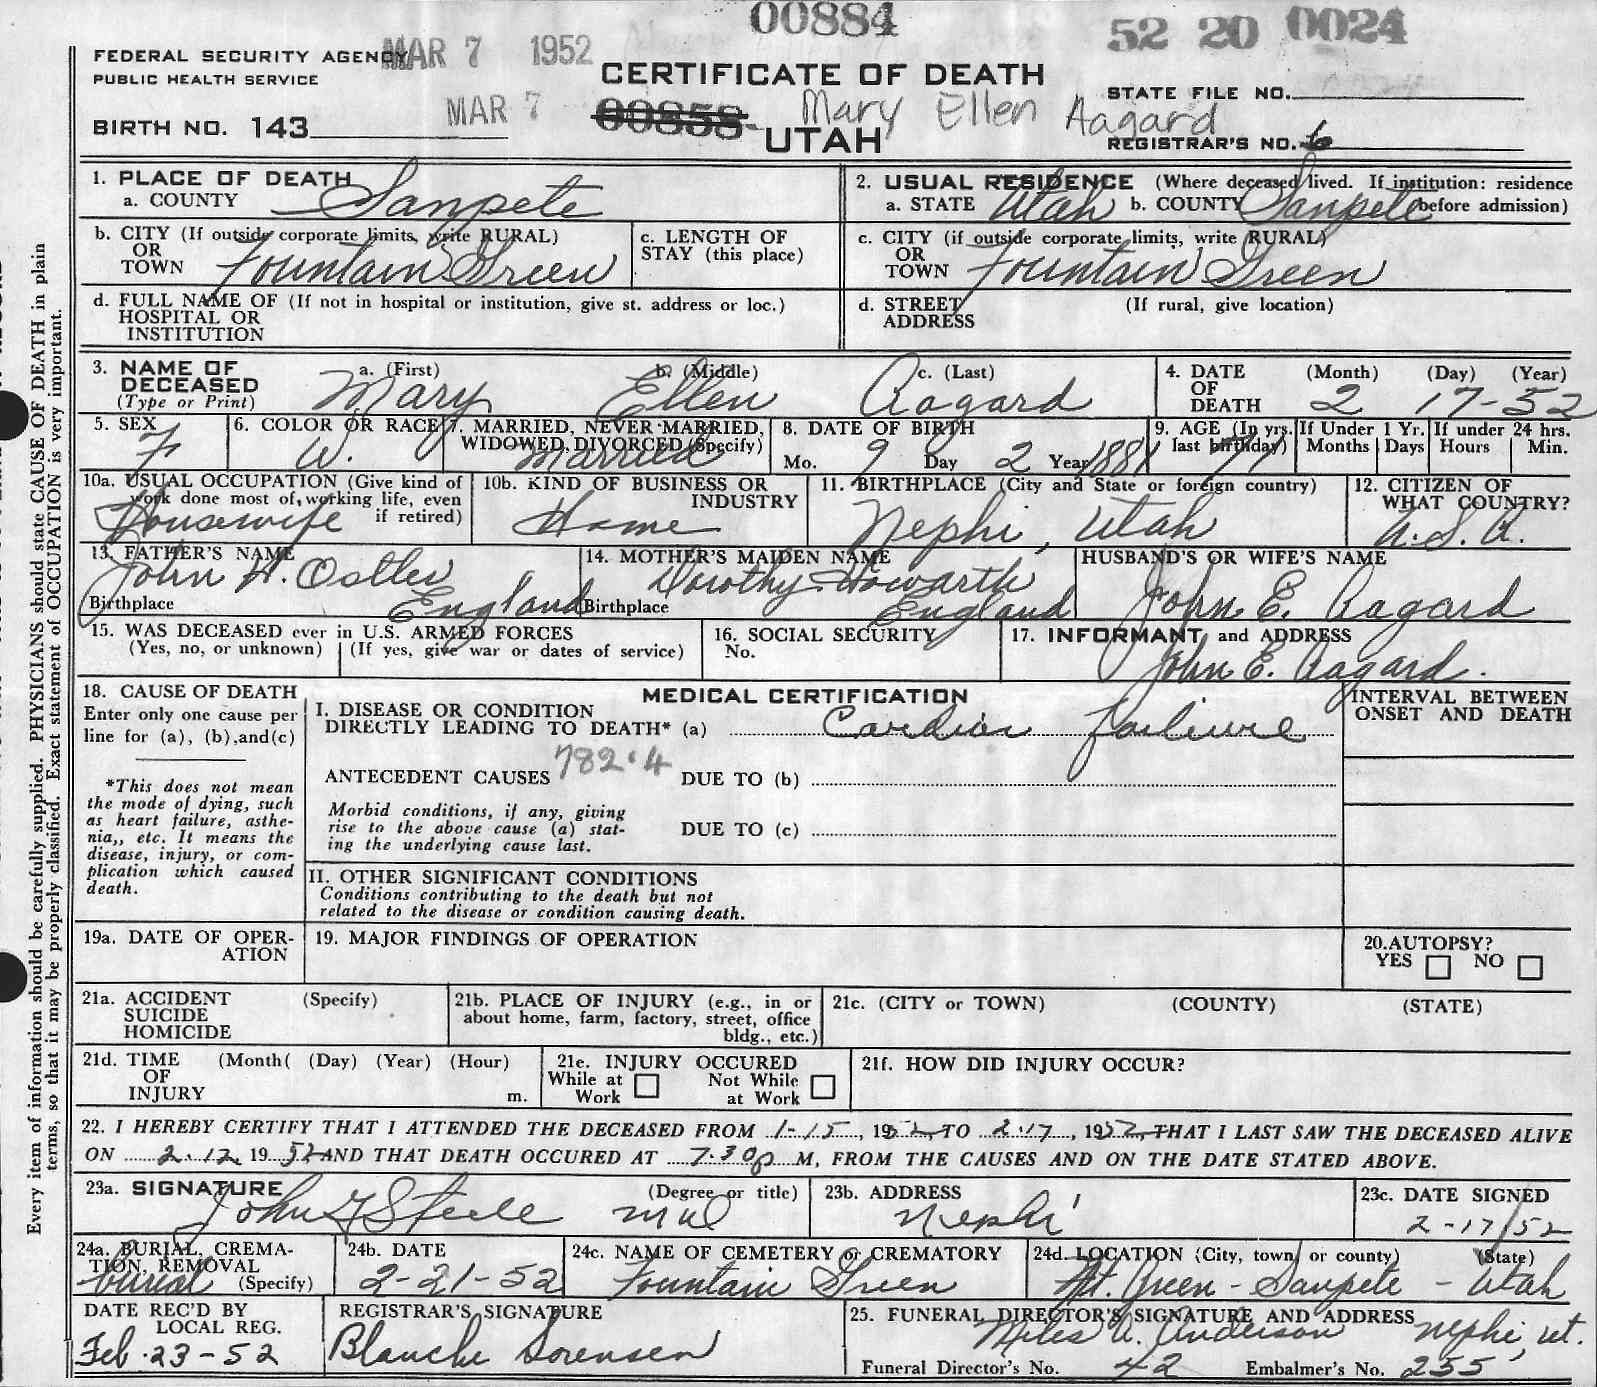 00884
52 20 0024
FEDERAL SECURITY AGENCY MAR 7 1952
PUBLIC HEALTH SERVICE
CERTIFICATE OF DEATH
STATE FILE NO.
MAR 7
00858 Mary Ellen Aagard
BIRTH NO. 143
UTAH
REGISTRAR'S NO. 6
1. PLACE OF DEATH
a. COUNTY Sanpete
2. USUAL RESIDENCE (Where deceased lived. If institution: residence
a. STATE Utah b. COUNTY Sanpete before admission)
b. CITY (If outside corporate limits, write RURAL)
OR
TOWN Fountain Green
c. LENGTH OF
STAY (this place)
c. CITY (if outside corporate limits, write RURAL)
OR
TOWN Fountain Green
d. FULL NAME OF (If not in hospital or institution, give st. address or loc.)
HOSPITAL OR
INSTITUTION
d. STREET (If rural, give location)
ADDRESS
3. NAME OF
DECEASED
(Type or Print)
a. (First) b. (Middle) c. (Last)
Mary Ellen Aagard
4. DATE (Month) (Day) (Year)
OF
DEATH 2 17-52
5. SEX
F
6. COLOR OR RACE
W.
7. MARRIED, NEVER MARRIED,
WIDOWED, DIVORCED (Specify)
Married
8. DATE OF BIRTH
Mo. 9 Day 2 Year 1881
9. AGE (In yrs. last birthday) 71
If Under 1 Yr.
Months Days
If under 24 hrs.
Hours Min.
10a. USUAL OCCUPATION (Give kind of
work done most of working life, even
if retired)
Housewife
10b. KIND OF BUSINESS OR
INDUSTRY
Home
11. BIRTHPLACE (City and State or foreign country)
Nephi, Utah
12. CITIZEN OF
WHAT COUNTRY?
U.S.A.
13. FATHER'S NAME
John H. Ostler
Birthplace England
14. MOTHER'S MAIDEN NAME
Dorothy Howarth
Birthplace England
HUSBAND'S OR WIFE'S NAME
John E. Aagard
15. WAS DECEASED ever in U.S. ARMED FORCES
(Yes, no, or unknown) (If yes, give war or dates of service)
16. SOCIAL SECURITY
No.
17. INFORMANT and ADDRESS
John E. Aagard.
18. CAUSE OF DEATH
Enter only one cause per
line for (a), (b),and(c)
*This does not mean
the mode of dying, such
as heart failure, asthe-
nia,, etc. It means the
disease, injury, or com-
plication which caused
death.
MEDICAL CERTIFICATION
I. DISEASE OR CONDITION
DIRECTLY LEADING TO DEATH* (a) Cardiac failure
782.4
ANTECEDENT CAUSES DUE TO (b)
Morbid conditions, if any, giving
rise to the above cause (a) stat-
ing the underlying cause last.
DUE TO (c)
II. OTHER SIGNIFICANT CONDITIONS
Conditions contributing to the death but not
related to the disease or condition causing death.
INTERVAL BETWEEN
ONSET AND DEATH
19a. DATE OF OPER-
ATION
19. MAJOR FINDINGS OF OPERATION
20.AUTOPSY?
YES NO
21a. ACCIDENT (Specify)
SUICIDE
HOMICIDE
21b. PLACE OF INJURY (e.g., in or
about home, farm, factory, street, office
bldg., etc.)
21c. (CITY or TOWN) (COUNTY) (STATE)
21d. TIME (Month( (Day) (Year) (Hour)
OF
INJURY m.
21e. INJURY OCCURED
While at Work Not While at Work
21f. HOW DID INJURY OCCUR?
22. I HEREBY CERTIFY THAT I ATTENDED THE DECEASED FROM 1-15, 1952, TO 2-17, 1952, THAT I LAST SAW THE DECEASED ALIVE
ON 2-12 1952 AND THAT DEATH OCCURED AT 7:30p M, FROM THE CAUSES AND ON THE DATE STATED ABOVE.
23a. SIGNATURE (Degree or title)
John G Steele MD
23b. ADDRESS
Nephi
23c. DATE SIGNED
2-17/52
24a. BURIAL, CREMA-
TION, REMOVAL
(Specify)
burial
24b. DATE
2-21-52
24c. NAME OF CEMETERY or CREMATORY
Fountain Green
24d. LOCATION (City, town, or county) (State)
Ft. Green - Sanpete - Utah
DATE REC'D BY
LOCAL REG.
Feb. 23-52
REGISTRAR'S SIGNATURE
Blanche Sorensen
25. FUNERAL DIRECTOR'S SIGNATURE AND ADDRESS
Miles A. Anderson Nephi, Ut.
Funeral Director's No. 42 Embalmer's No. 255
Every item of information should be carefully supplied. PHYSICIANS should state CAUSE OF DEATH in plain
terms, so that it may be properly classified. Exact statement of OCCUPATION is very important.